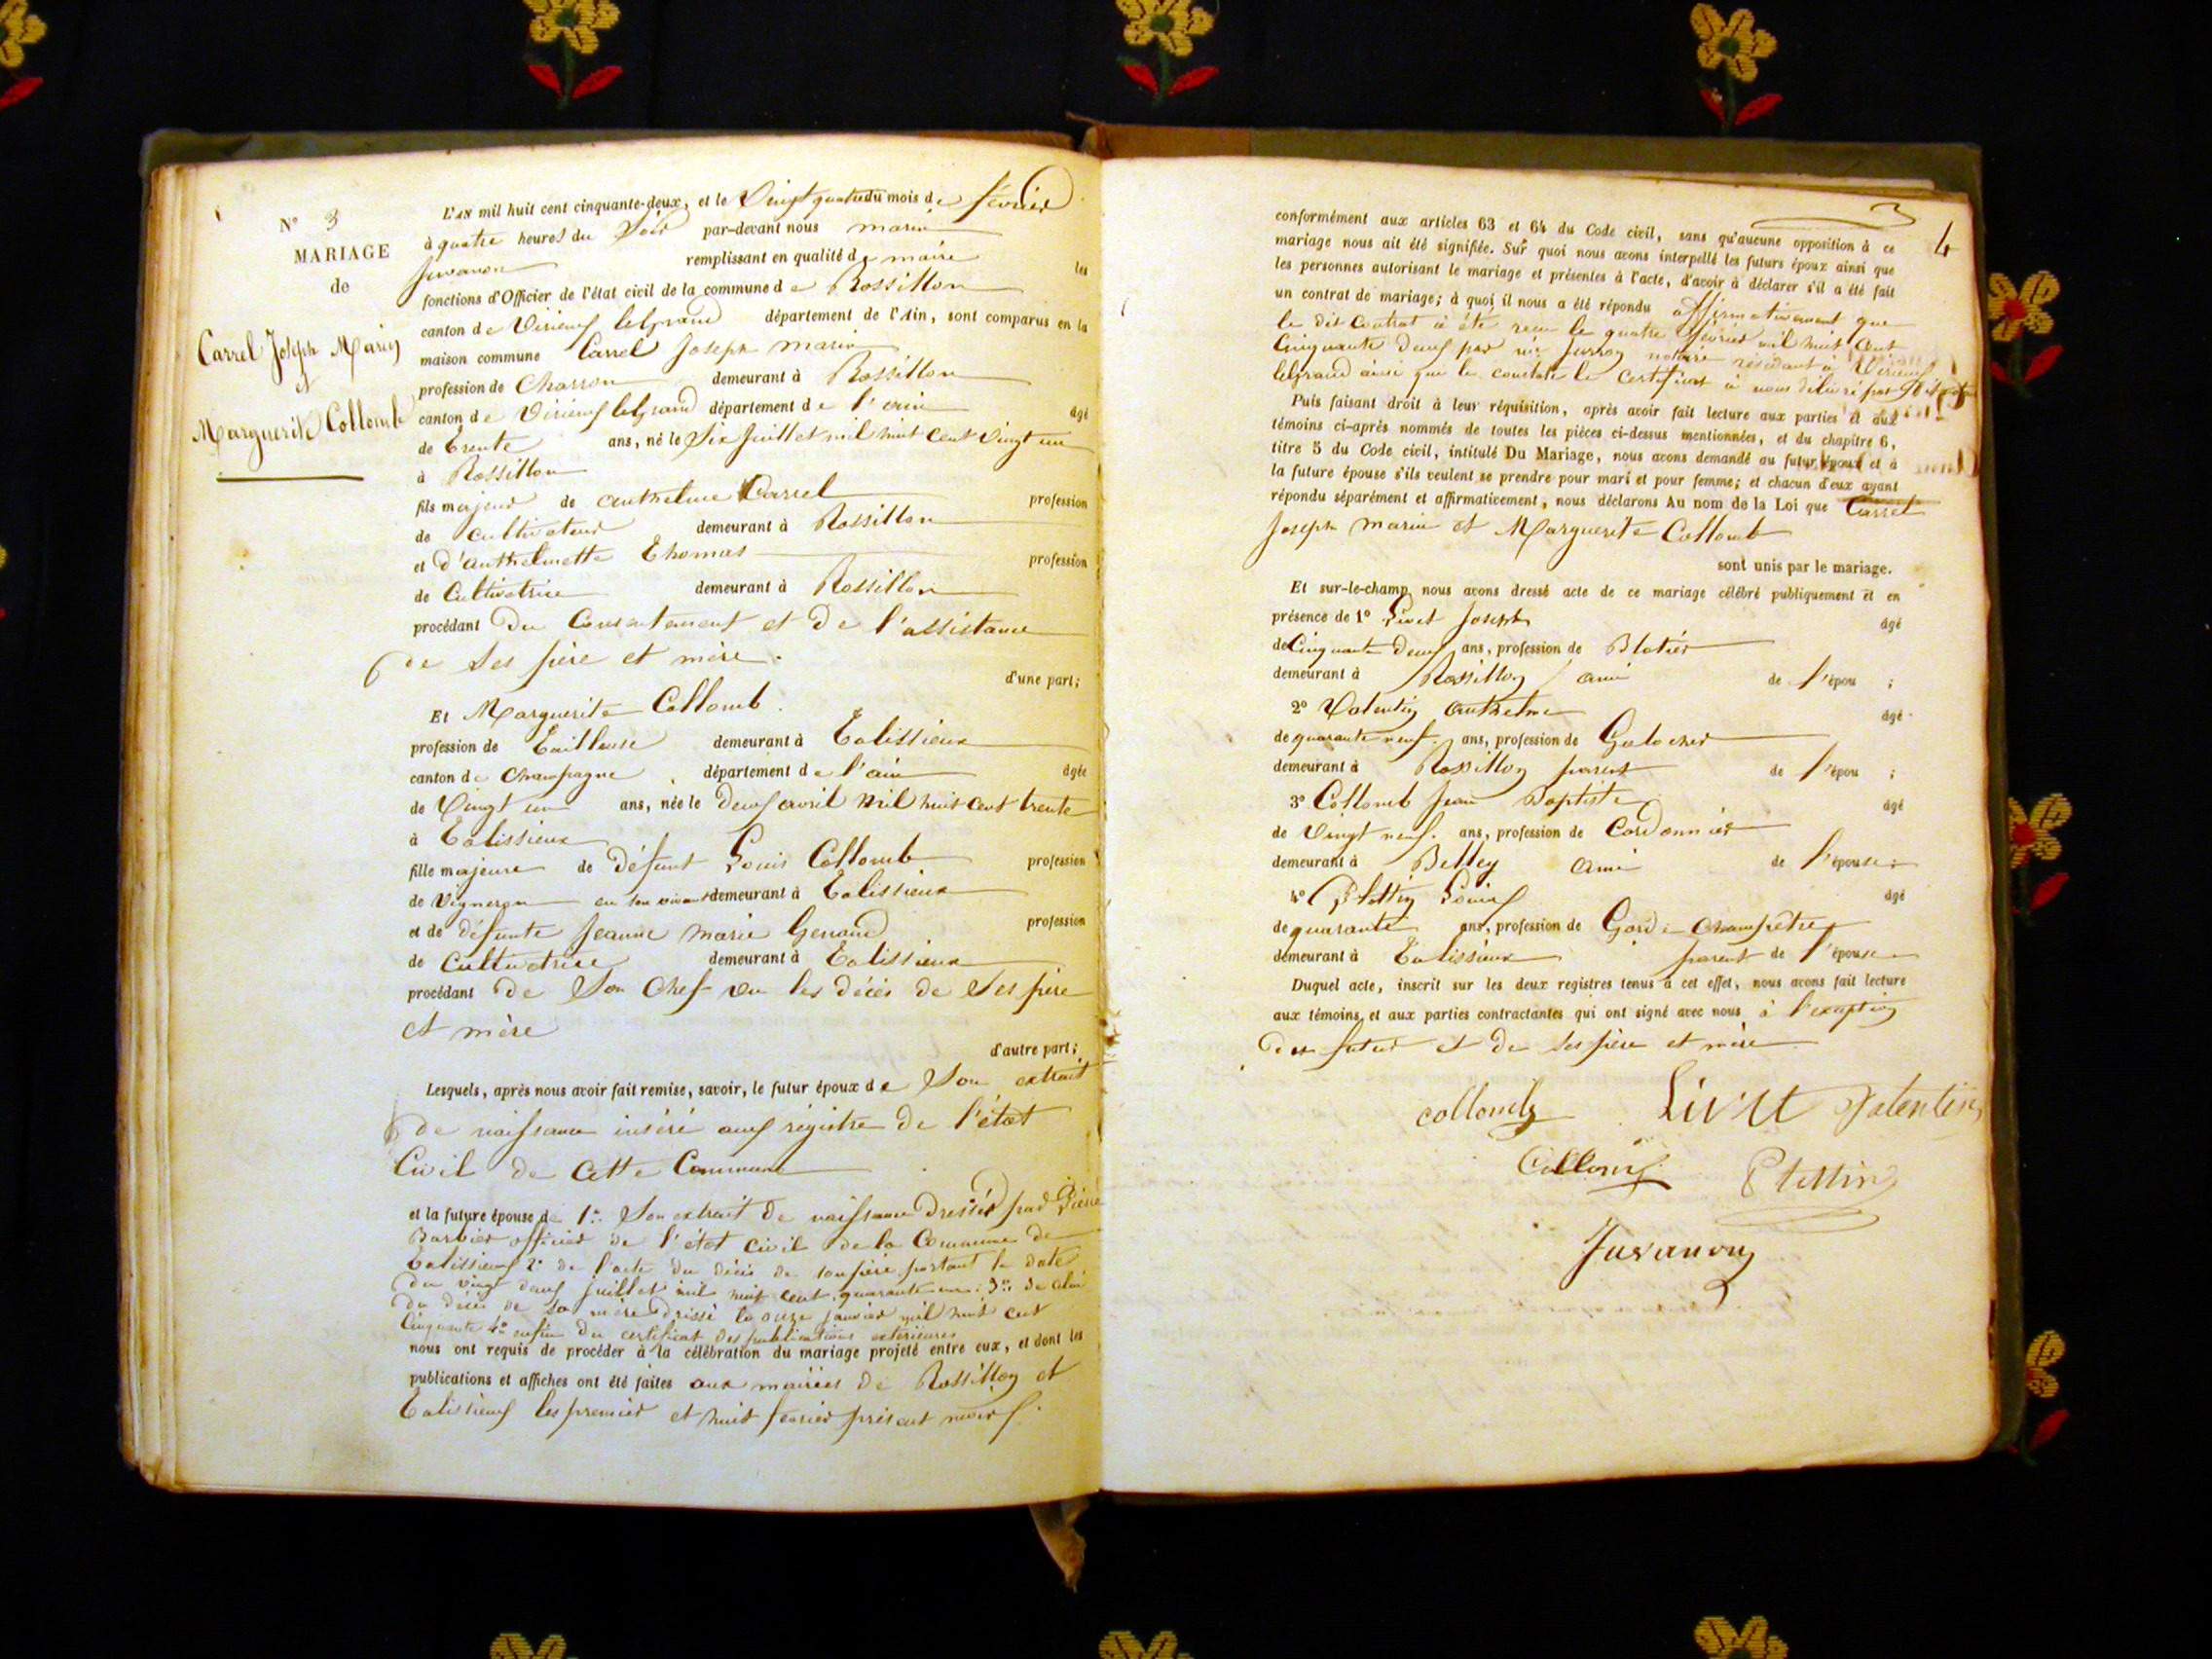 N° 3
MARIAGE
de
Carrel Joseph Marin
et
Marguerite Collomb
L'AN mil huit cent cinquante-deux, et le Vingt quatre du mois de février
à quatre heures du Soir par-devant nous marin
Juvanon remplissant en qualité de maire les
fonctions d'Officier de l'état civil de la commune de Rossillon
canton de Virieux lelgrand département de l'Ain, sont comparus en la
maison commune Carrel Joseph marin
profession de Charron demeurant à Rossillon
canton de Virieux lelgrand département de l'ain âgé
de trente ans, né le Six Juillet mil huit cent vingt un
à Rossillon
fils majeur de anthelme Carrel profession
de cultivateur demeurant à Rossillon
et d'anthelmette Thomas profession
de Cultivatrice demeurant à Rossillon
procédant Du Consentement et De l'assistance
de ses père et mère.
d'une part;
Et Marguerite Collomb
profession de Tailleuse demeurant à Talissieux
canton de Champagne département de l'ain âgée
de Vingt un ans, née le Deux avril mil huit cent trente
à Talissieux
fille majeure de Défunt Louis Collomb profession
de Vigneron en son vivant demeurant à Talissieux
et de défunte Jeanne marie Genand profession
de Cultivatrice demeurant à Talissieux
procédant De Son Chef vu les décès de Ses père
et mère
d'autre part;
Lesquels, après nous avoir fait remise, savoir, le futur époux de Son extrait
De naissance inséré aux régistre De l'état
Civil De Cette Commune
et la future épouse de 1° Son extrait De naissance Dressés par Pierre
Barbier officier De l'état civil De la Commune De
Talissieux 2° De l'acte Du décès De son père portant la date
Du vingt deux juillet mil huit cent quarante un 3° De celui
Du décès De sa mère Dressé le onze janvier mil huit cent
Cinquante 4° enfin Du certificat Des publications exterieures
nous ont requis de procéder à la célébration du mariage projeté entre eux, et dont les
publications et affiches ont été faites aux mairies De Rossillon et
Talissieux les premier et huit fevrier présent mois.
3
4
conformément aux articles 63 et 64 du Code civil, sans qu'aucune opposition à ce
mariage nous ait été signifiée. Sur quoi nous avons interpellé les futurs époux ainsi que
les personnes autorisant le mariage et présentes à l'acte, d'avoir à déclarer s'il a été fait
un contrat de mariage; à quoi il nous a été répondu affirmativement que
le dit Contrat à été recu le quatre fevrier mil huit Cent
Cinquante Deux par notaire résidant à Virieux
lelgrand ainsi que le constate le Certificat à nous délivré par
Puis faisant droit à leur réquisition, après avoir fait lecture aux parties et aux
témoins ci-après nommés de toutes les pièces ci-dessus mentionnées, et du chapitre 6,
titre 5 du Code civil, intitulé Du Mariage, nous avons demandé au futur époux et à
la future épouse s'ils veulent se prendre pour mari et pour femme; et chacun d'eux ayant
répondu séparément et affirmativement, nous déclarons Au nom de la Loi que Carrel
Joseph marin et Marguerite Collomb
sont unis par le mariage.
Et sur-le-champ nous avons dressé acte de ce mariage célébré publiquement et en
présence de 1° Livet Joseph âgé
de Cinquante Deux ans, profession de Blatier
demeurant à Rossillon ami de l'épou ;
2° Valentin anthelme âgé
de quarante neuf ans, profession de Galocher
demeurant à Rossillon parent de l'épou ;
3° Collomb Jean Baptiste âgé
de Vingt neuf ans, profession de Cordonnier
demeurant à Belley ami de l'épouse;
4° Louis âgé
de quarante ans, profession de Garde Champêtre
demeurant à Talissieux parent de l'épouse
Duquel acte, inscrit sur les deux registres tenus à cet effet, nous avons fait lecture
aux témoins et aux parties contractantes qui ont signé avec nous à l'exception
Du futur et De ses père et mère
collomb Livet Valentin
Collomb
Juvanon